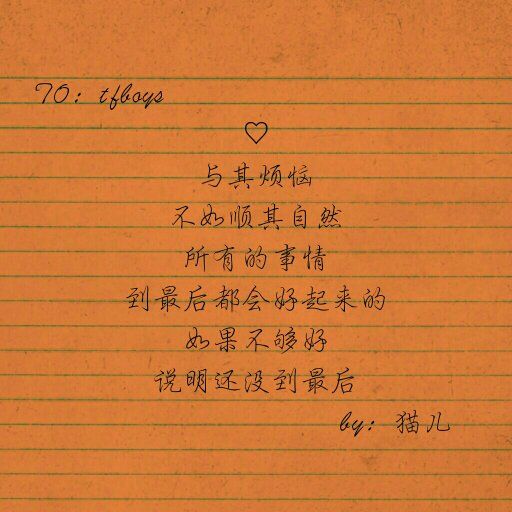 TO: tfboys
♡
与其烦恼
不如顺其自然
所有的事情
到最后都会好起来的
如果不够好
说明还没到最后
by: 猫儿